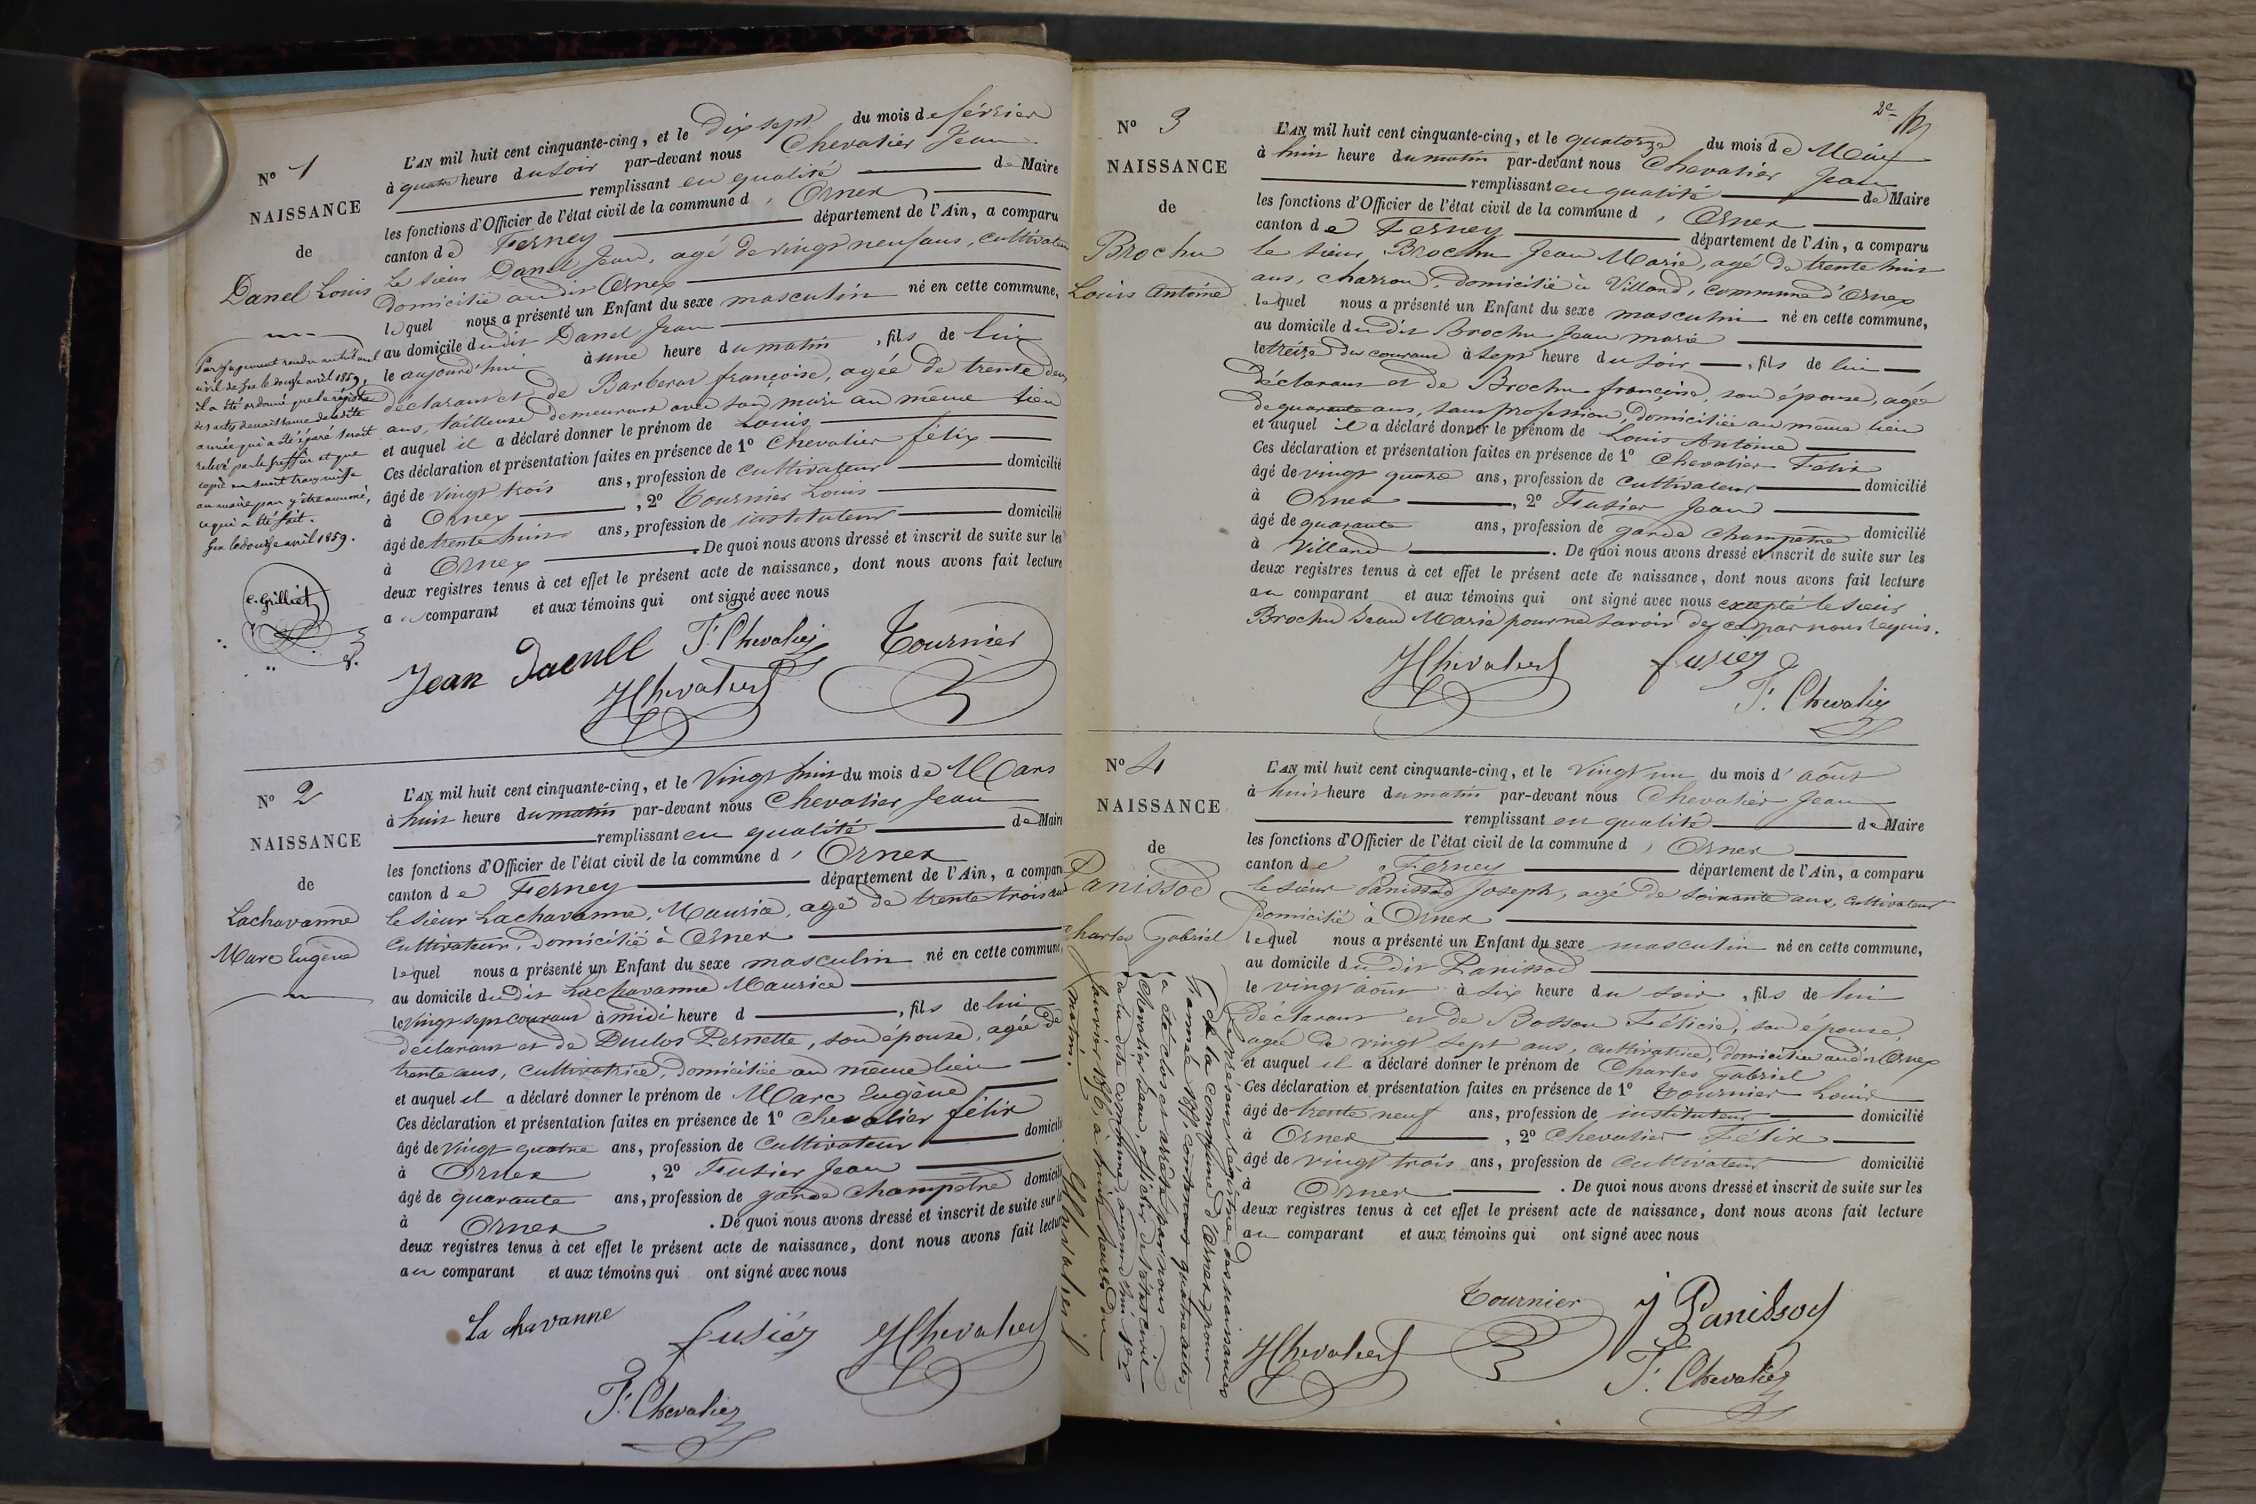 N° 1
NAISSANCE
de
Danel Louis
Par jugement rendu au tribunal
civil de Gex le douze avril 1859,
il a été ordonné que le registre
des actes de naissance de ladite
année qui a été égaré serait
relevé par le greffier et que
copie en serait transmise
au maire pour y être annexé,
ce qui a été fait.
Gex le douze avril 1859.
C. Grilliet
L'AN mil huit cent cinquante-cinq, et le dix sept du mois de février
à quatre heure du soir par-devant nous Chevalier Jean
remplissant en qualité de Maire
les fonctions d'Officier de l'état civil de la commune d' Ornex
canton de Ferney département de l'Ain, a comparu
Le sieur Danel Jean, agé de vingt neuf ans, cultivateur
domicilié au dit Ornex
lequel nous a présenté un Enfant du sexe masculin né en cette commune,
au domicile du dit Danel Jean
le aujourd'hui à une heure du matin, fils de lui
déclarant et de Barberat françoise, agée de trente deux
ans, tailleuse demeurant avec son mari au même lieu
et auquel il a déclaré donner le prénom de Louis
Ces déclaration et présentation faites en présence de 1° Chevalier félix
âgé de vingt trois ans, profession de cultivateur domicilié
à Ornex, 2° Tournier Louis
âgé de trente huit ans, profession de instituteur domicilié
à Ornex. De quoi nous avons dressé et inscrit de suite sur les
deux registres tenus à cet effet le présent acte de naissance, dont nous avons fait lecture
au comparant et aux témoins qui ont signé avec nous
Jean Daenll F. Chevalier Tournier
JChevalier
N° 2
NAISSANCE
de
Lachavanne
Marc Eugène
L'AN mil huit cent cinquante-cinq, et le vingt huit du mois de Mars
à huit heure du matin par-devant nous Chevalier Jean
remplissant en qualité de Maire
les fonctions d'Officier de l'état civil de la commune d' Ornex
canton de Ferney département de l'Ain, a comparu
le sieur Lachavanne, Maurice, agé de trente trois ans
cultivateur, domicilié à Ornex
lequel nous a présenté un Enfant du sexe masculin né en cette commune,
au domicile du dit Lachavanne Maurice
le vingt sept courant à midi heure d , fils de lui
déclarant et de Duclos Pernette, son épouse, agée de
trente ans, cultivatrice, domiciliée au même lieu
et auquel il a déclaré donner le prénom de Marc Eugène
Ces déclaration et présentation faites en présence de 1° Chevalier félix
âgé de vingt quatre ans, profession de cultivateur domicilié
à Ornex, 2° Fusier Jean
âgé de quarante ans, profession de garde champetre domicilié
à Ornex. De quoi nous avons dressé et inscrit de suite sur les
deux registres tenus à cet effet le présent acte de naissance, dont nous avons fait lecture
au comparant et aux témoins qui ont signé avec nous
La chavanne fusier JChevalier
F. Chevalier
2e
N° 3
NAISSANCE
de
Brochu
Louis Antoine
L'AN mil huit cent cinquante-cinq, et le quatorze du mois de Mai
à huit heure du matin par-devant nous Chevalier Jean
remplissant en qualité de Maire
les fonctions d'Officier de l'état civil de la commune d' Ornex
canton de Ferney département de l'Ain, a comparu
le sieur, Brochu Jean Marie, agé de trente huit
ans, charron, domicilié à Villard, commune d'Ornex
lequel nous a présenté un Enfant du sexe masculin né en cette commune,
au domicile du dit Brochu Jean marie
le treize du courant à sept heure du soir, fils de lui
déclarant et de Brochu françoise, son épouse, agée
de quarante ans, sans profession, domiciliée au même lieu
et auquel il a déclaré donner le prénom de Louis Antoine
Ces déclaration et présentation faites en présence de 1° Chevalier Félix
âgé de vingt quatre ans, profession de cultivateur domicilié
à Ornex, 2° Fusier Jean
âgé de quarante ans, profession de garde champetre domicilié
à Villard. De quoi nous avons dressé et inscrit de suite sur les
deux registres tenus à cet effet le présent acte de naissance, dont nous avons fait lecture
au comparant et aux témoins qui ont signé avec nous excepté le sieur
Brochu Jean Marie pour ne savoir de ce par nous requis.
JChevalier fusier
F. Chevalier
N° 4
NAISSANCE
de
Panissod
Charles Gabriel
L'AN mil huit cent cinquante-cinq, et le vingt un du mois d' août
à huit heure du matin par-devant nous Chevalier Jean
remplissant en qualité de Maire
les fonctions d'Officier de l'état civil de la commune d' Ornex
canton de Ferney département de l'Ain, a comparu
le sieur Panissod Joseph, agé de soixante ans, cultivateur
domicilié à Ornex
lequel nous a présenté un Enfant du sexe masculin né en cette commune,
au domicile du dit Panissod
le vingt août à six heure du soir, fils de lui
déclarant et de Bosson Félicie, son épouse,
agée de vingt sept ans, cultivatrice, domiciliée au dit Ornex
et auquel il a déclaré donner le prénom de Charles Gabriel
Ces déclaration et présentation faites en présence de 1° Tournier Louis
âgé de trente neuf ans, profession de instituteur domicilié
à Ornex, 2° Chevalier Félix
âgé de vingt trois ans, profession de cultivateur domicilié
à Ornex. De quoi nous avons dressé et inscrit de suite sur les
deux registres tenus à cet effet le présent acte de naissance, dont nous avons fait lecture
au comparant et aux témoins qui ont signé avec nous
Tournier J Panissod
JChevalier F. Chevalier
Le présent régistre des naissances
de la commune d'Ornex, pour
l'année 1855, contenant quatre actes,
a été clos et arrêté par nous
Chevalier Jean, officier de l'état civil
de la dite commune, aujourd'hui 1er
Janvier 1856, à huit heures du
matin.
JChevalier